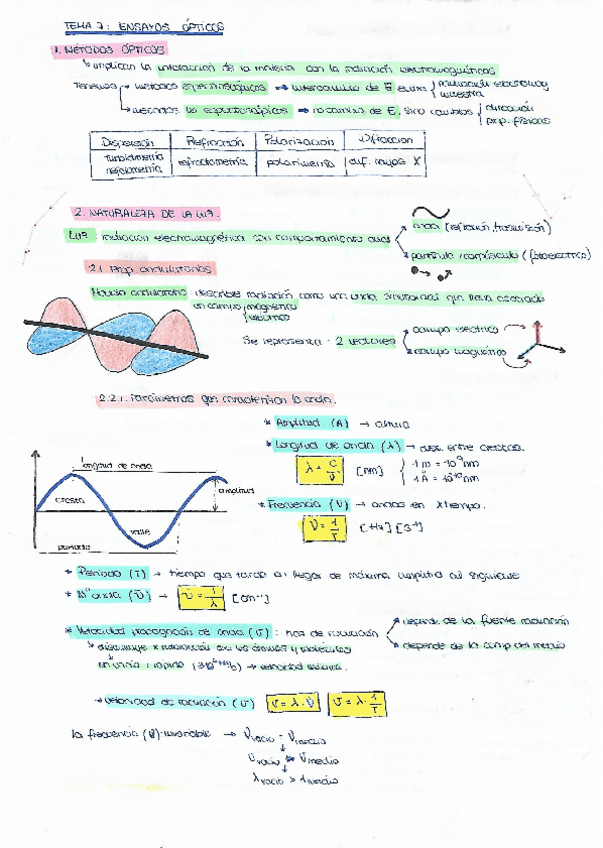 TEMA 7: ENSAYOS ÓPTICOS
1. MÉTODOS ÓPTICOS
implican la interacción de la materia con la radiación electromagnética
Tenemos → métodos espectroscópicos ⇒ intercambio de E entre radiación electromag
muestra
→ métodos no espectroscópicos → no cambio de E, sino cambios dirección
prop. físicas
Dispersión Refracción Polarización Difracción
turbidimetría refractometría polarimetría dif. rayos X
nefelometría
2. NATURALEZA DE LA LUZ.
Luz: radiación electromagnética con comportamiento dual
onda (refracción, transmisión)
partícula
2.1. Prop. ondulatorias
describe radiación como una onda sinusoidal que lleva asociado
un campo magnético
eléctrico
Se representa 2 vectores campo eléctrico
campo magnético
2.2.1. Parámetros que caracterizan la onda.
* Amplitud (A) → altura
* Longitud de onda (λ) → entre crestas.
λ = C/ν [nm] 1 m = 10⁹ nm
longitud de onda
cresta
amplitud
valle
periodo
* Frecuencia (ν) → ondas en x tiempo.
ν = 1/T
* Periodo (T) → tiempo que tarda en llegar de máxima amplitud al siguiente
* Nº onda (ν̄) → ν̄ = 1/λ [cm⁻¹]
* Velocidad propagación de onda (v):
depende de la fuente radiación
depende de la comp del medio
disminuye x interacción con los átomos y moléculas
→ velocidad máxima.
→ velocidad de radiación (v) v = λ · ν v = λ · 1/T
la frecuencia (ν) invariable → ν vacío = ν medio
v vacío v medio
λ vacío > λ medio